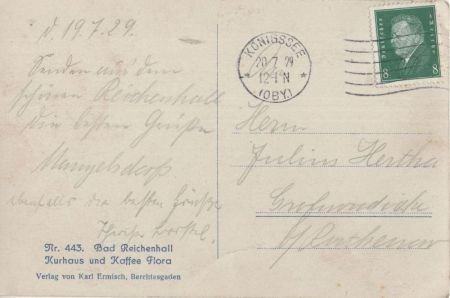 d. 19.7.29.
Senden aus dem
schönen Reichenhall
die besten Grüße
Mangelsdorf
ebenfalls die besten Grüße
Nr. 443. Bad Reichenhall
Kurhaus und Kaffee Flora
Verlag von Karl Ermisch, Berchtesgaden
KÖNIGSSEE
20.7.29
12-1 N
(OBY.)
Deutsches Reich
8 8
Herrn
Julius Hertha